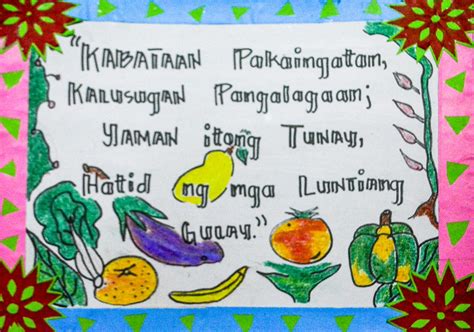 "KABATAAN Pakaingatan,
KALUSUGAN Pangalagaan;
YAMAN itong TUNAY,
Hatid ng mga LUNTIANG
GULAY."